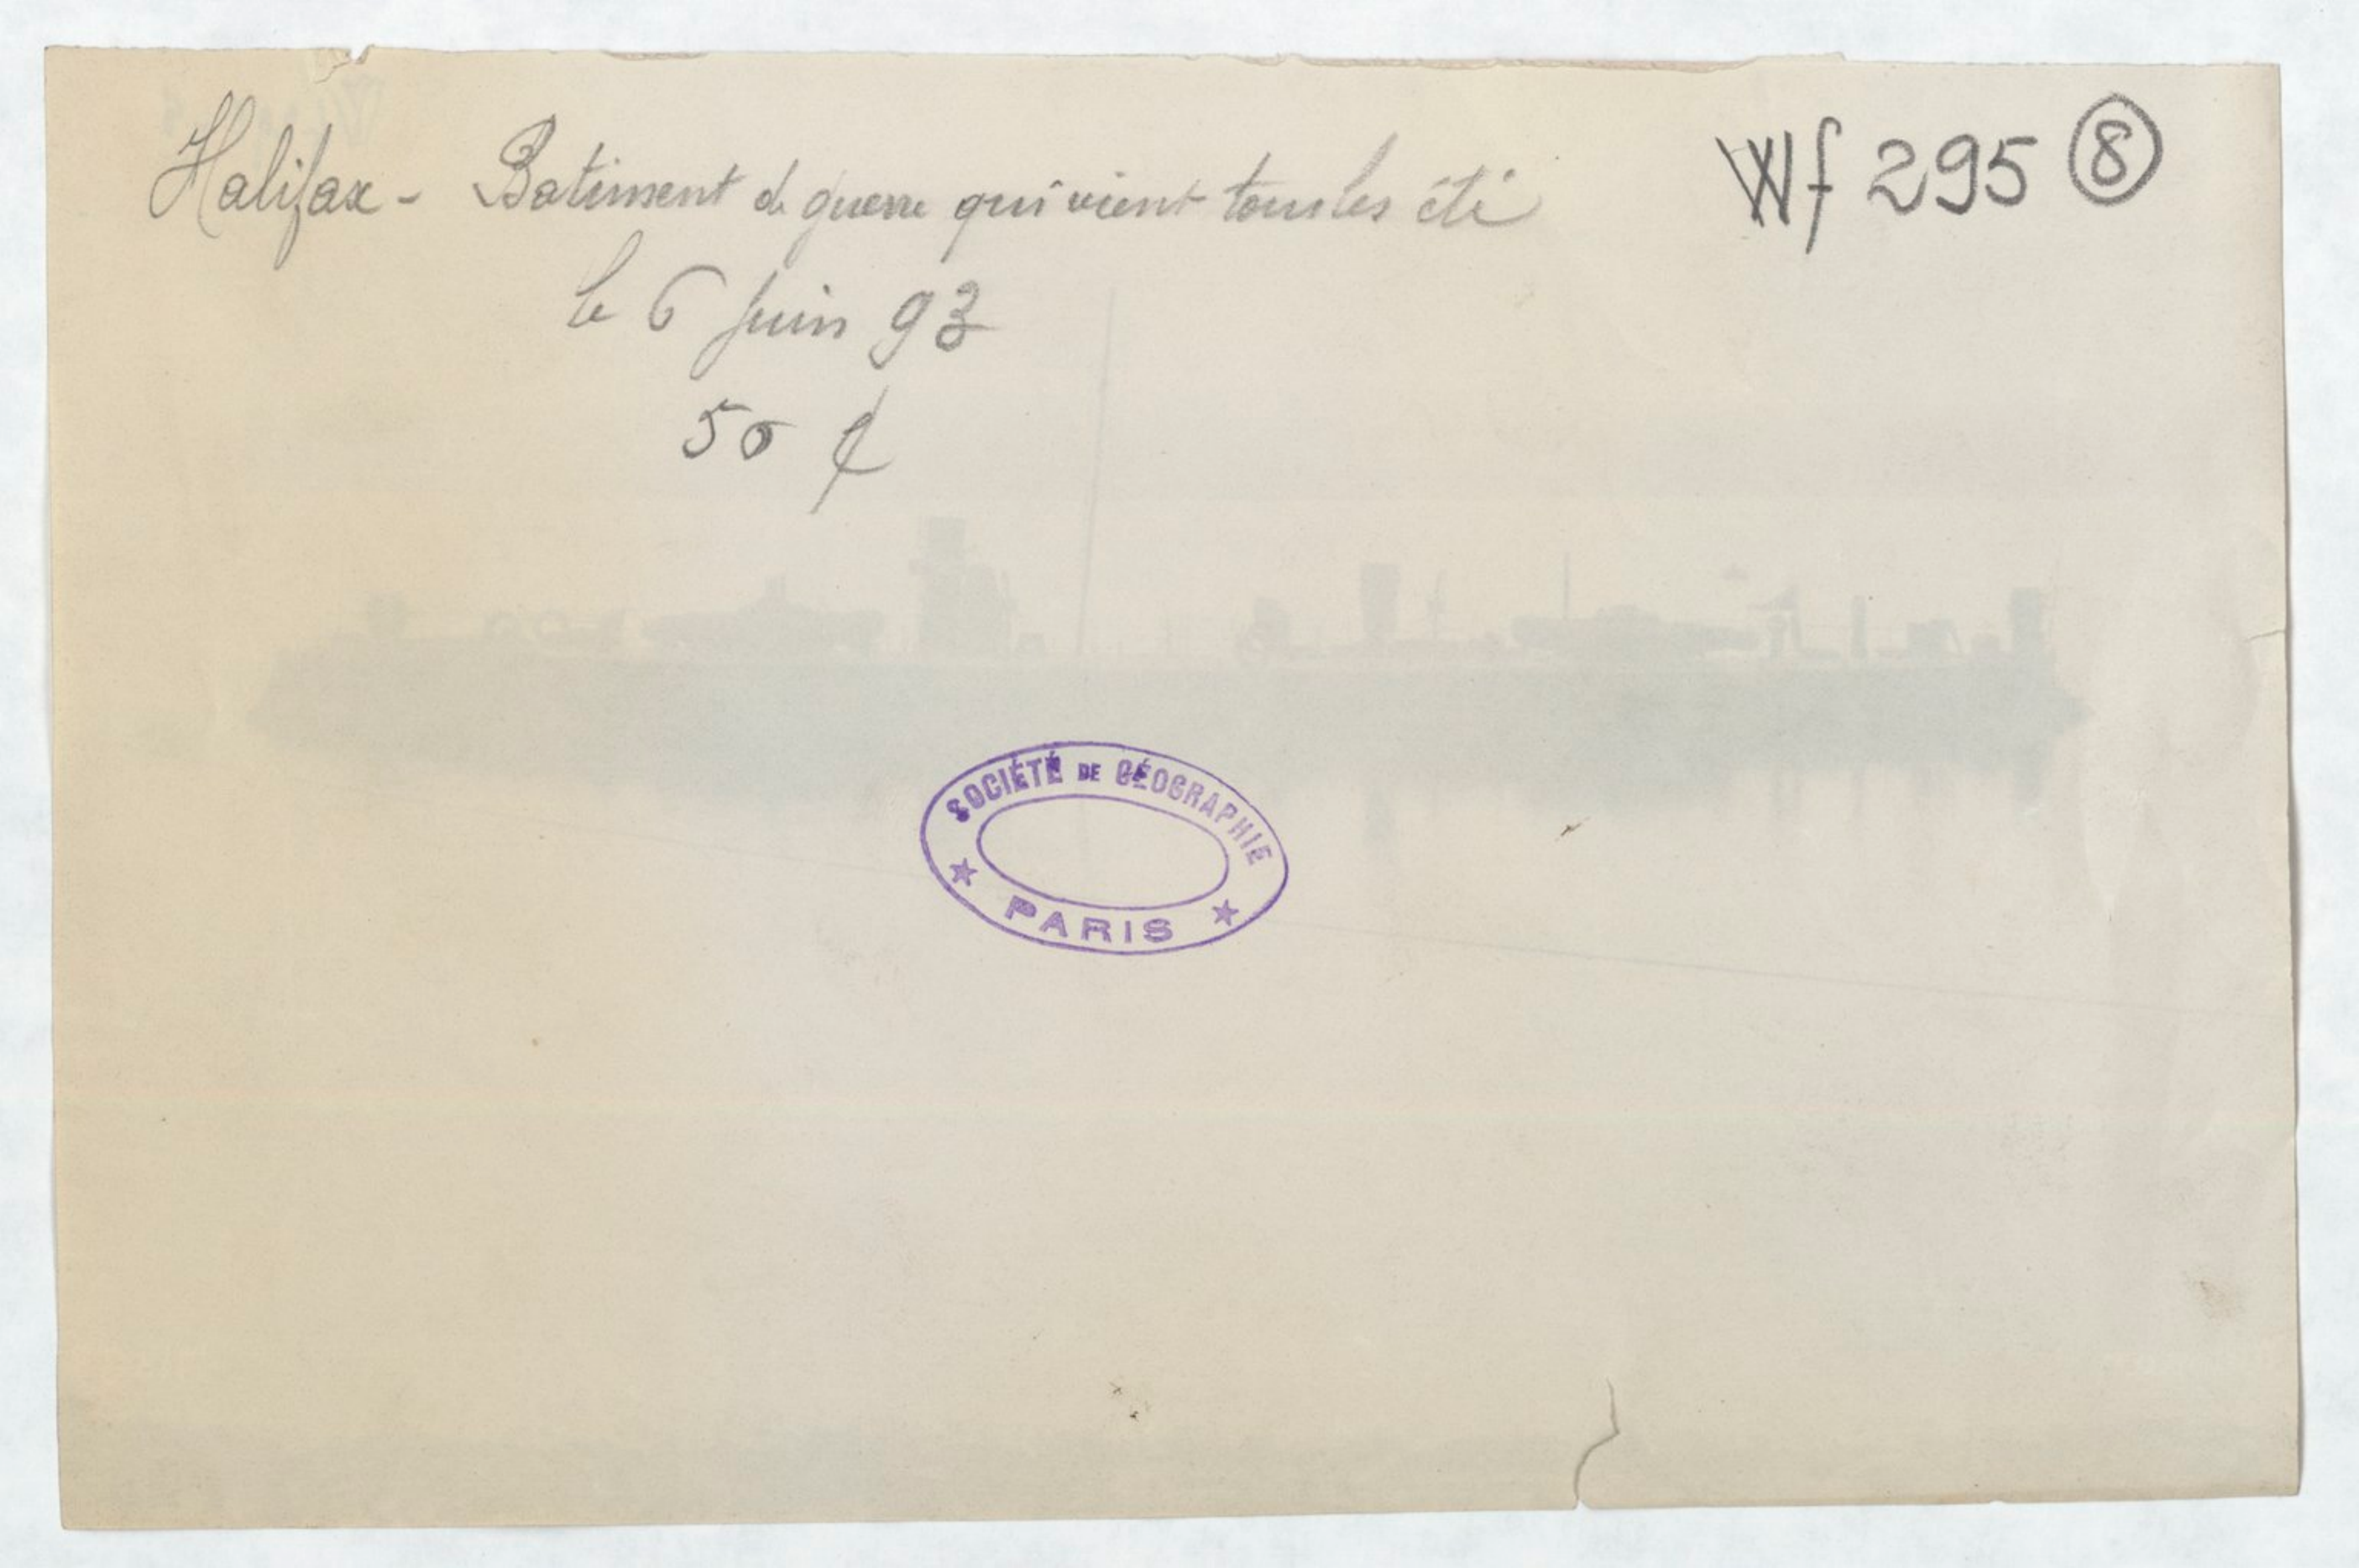 Halifax - Batiment de guerre qui vient tous les été
Wf 295 8
le 6 Juin 93
50 ¢
SOCIÉTÉ DE GÉOGRAPHIE
★ PARIS ★